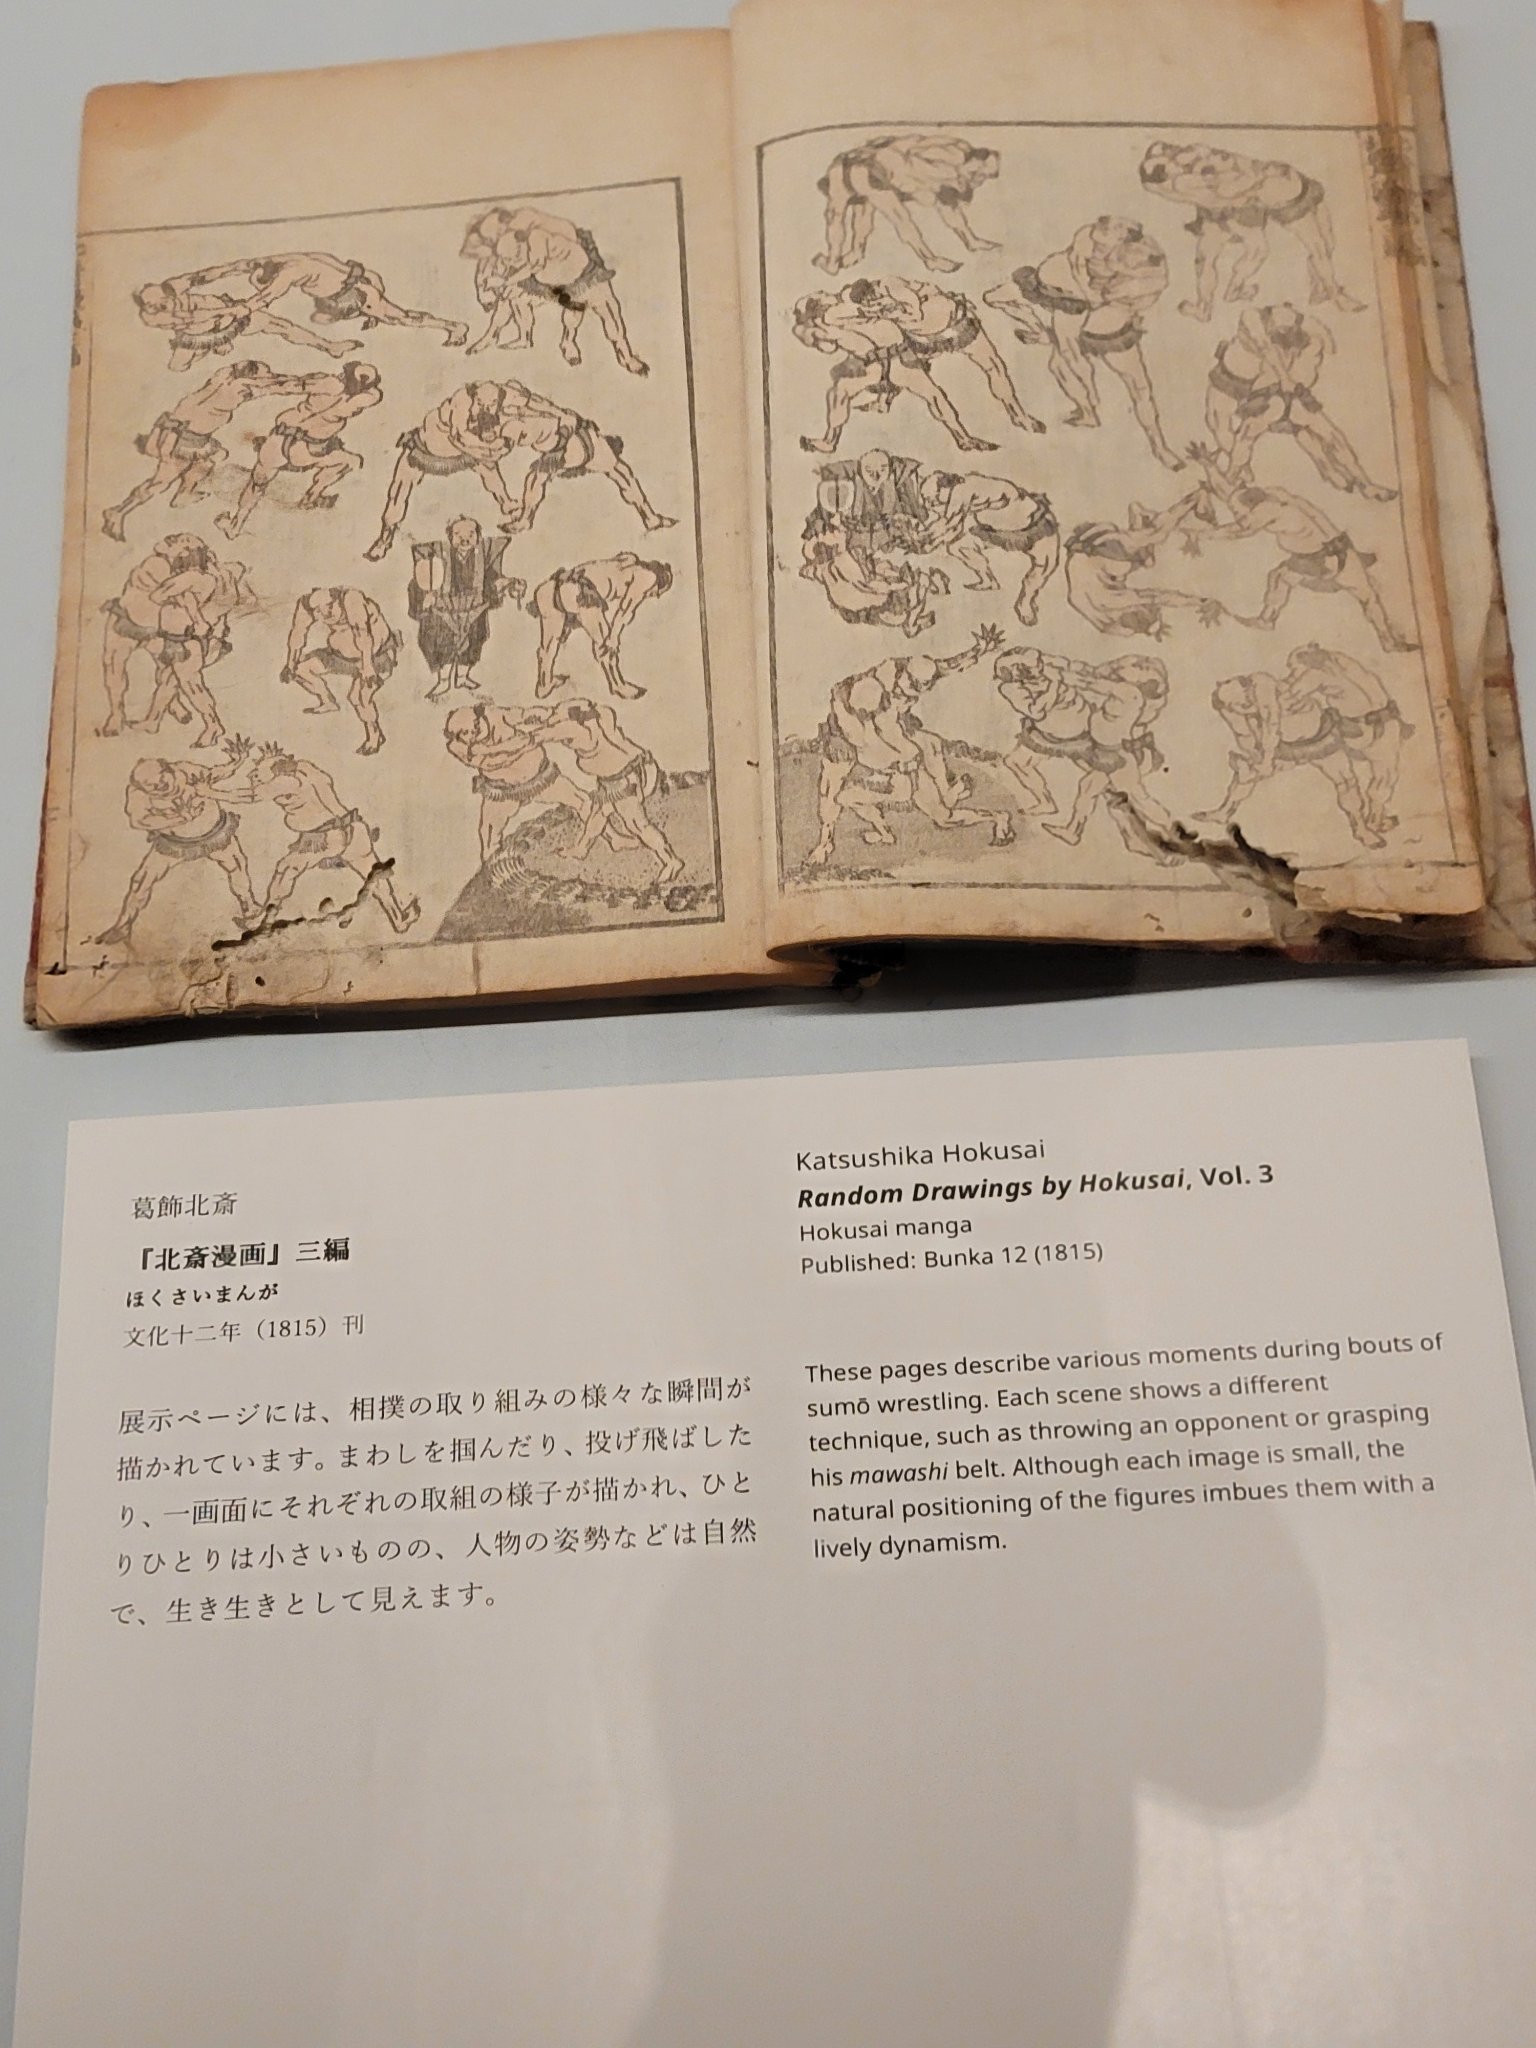 葛飾北斎
『北斎漫画』三編
ほくさいまんが
文化十二年（1815）刊
展示ページには、相撲の取り組みの様々な瞬間が
描かれています。まわしを掴んだり、投げ飛ばした
り、一画面にそれぞれの取組の様子が描かれ、ひと
りひとりは小さいものの、人物の姿勢などは自然
で、生き生きとして見えます。
Katsushika Hokusai
Random Drawings by Hokusai, Vol. 3
Hokusai manga
Published: Bunka 12 (1815)
These pages describe various moments during bouts of
sumō wrestling. Each scene shows a different
technique, such as throwing an opponent or grasping
his mawashi belt. Although each image is small, the
natural positioning of the figures imbues them with a
lively dynamism.